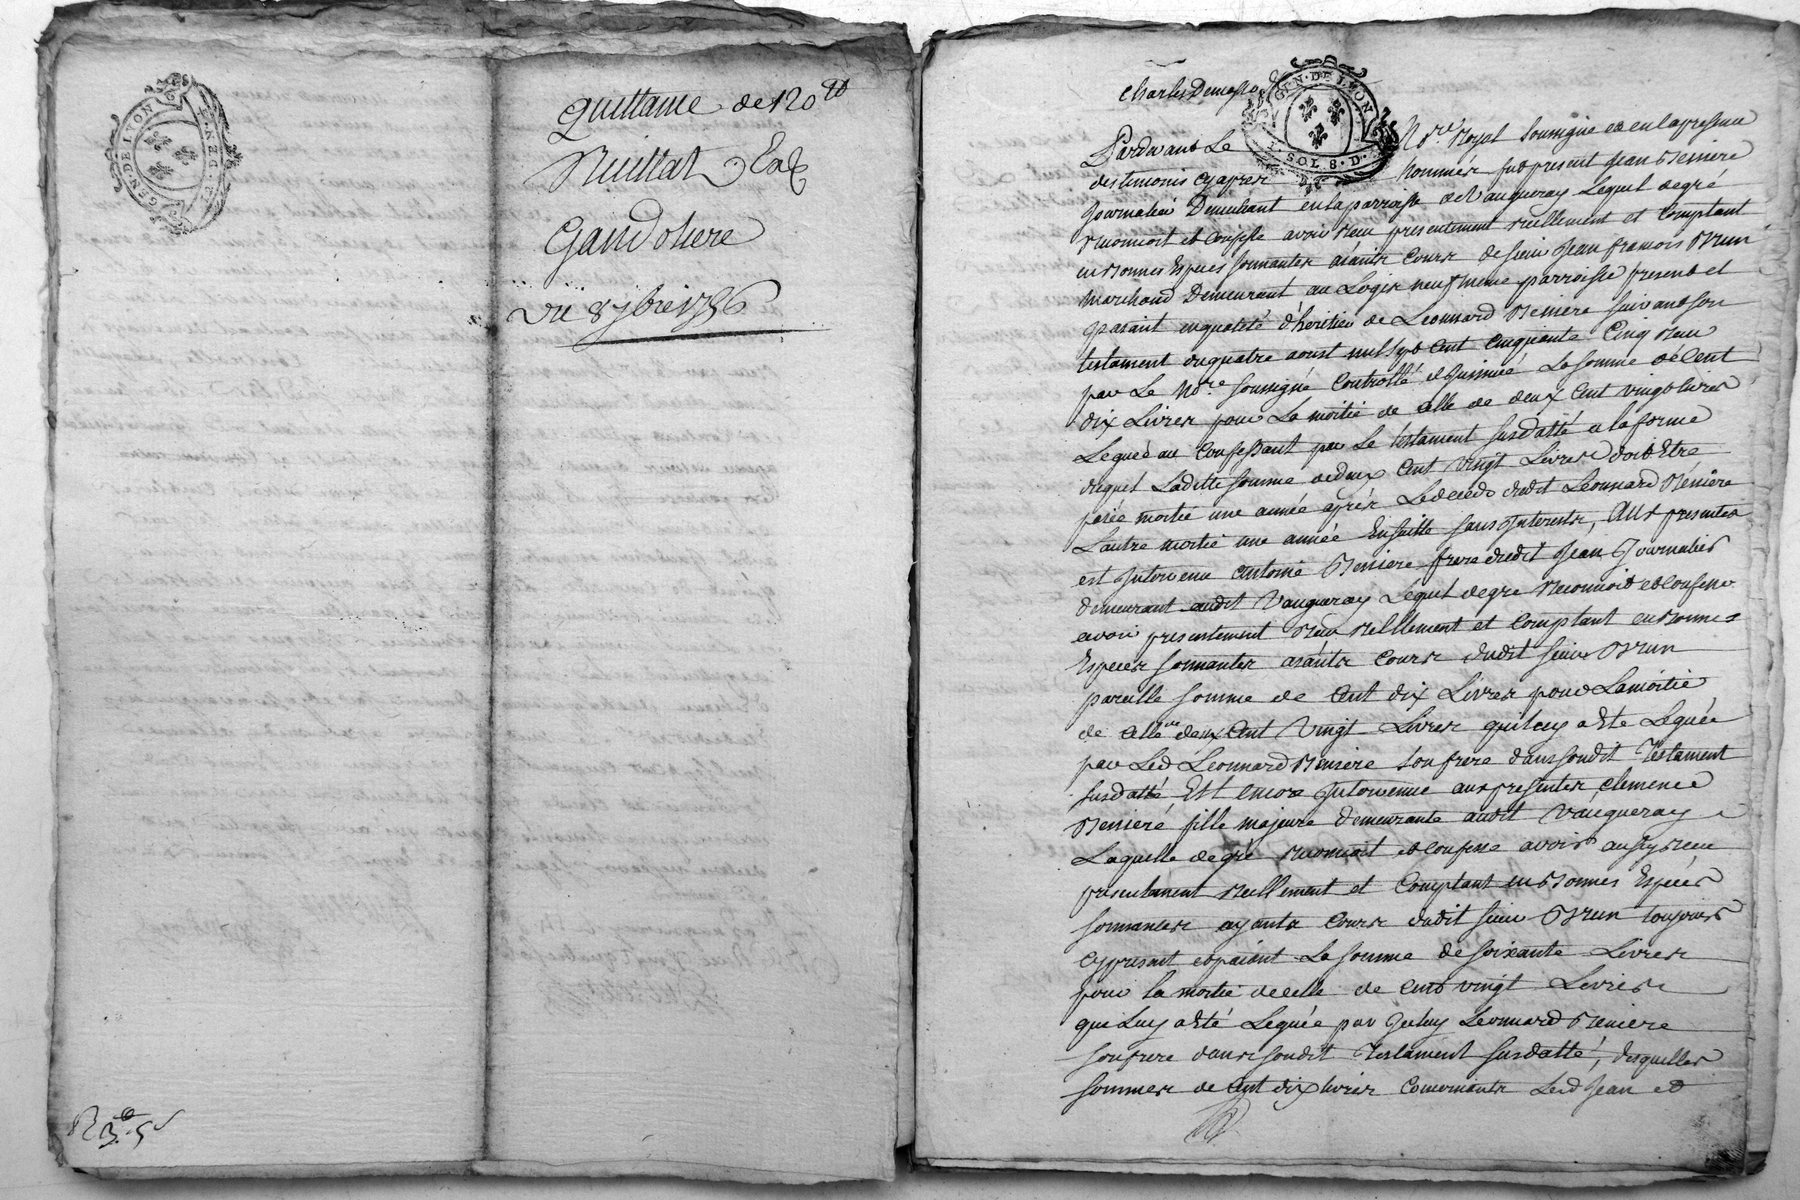 GEN. DE LYON
Quittance de 120 ₶
Nuillat
Gandoliere
Du 8 7bre 1756
GEN. DE LYON
1. SOL 8. D.
Pardevant Le Nre. Royal soussigné et en la presence
des temoins cyapres nommés fut present Jean Reniere
Journalier Demeurant en la parroisse de Vaugneray Lequel de gré
reconnoit et confesse avoir reçu presentement reellement et Comptant
en bonnes Especes sonnantes aÿants Cours de sieur Jean francois Brun
marchand Demeurant au Logis neuf meme parroisse present et
païant en qualité d'heritier de Leonnard Reniere suivant son
testament du quatre aoust mil sept Cent Cinquante Cinq Reçu
par Le Nre. soussigné Controllé et Insinué La somme de Cent
dix Livres pour La moitié de celle de deux Cent vingt livres
Legué au Confessant par Le testament susdatté a la forme
duquel Laditte somme de deux Cent vingt Livres doit Etre
païée moitié une année après Le decéds dudit Léonnard Reniere
L'autre moitié une année Ensuitte sans Interests, Aux presentes
est Intervenu antoine Reniere frere dudit Jean Journalier
demeurant audit Vaugneray Lequel de gré Reconnoit et confesse
avoir presentement Reçu réellement et Comptant en bonnes
Especes sonnantes aïants Cours dudit sieur Brun
pareille somme de Cent dix Livres pour La moitié
de celle de deux Cent Vingt Livres qui luy a eté Leguée
par Led Leonnard Reniere son frere dans sondit Testament
susdatté Est encore Intervenue aux presentes clemence
Reniere fille majeure demeurante audit Vaugneray
Laquelle de gré reconnoit et confesse avoir aussy reçu
presentement reellement et Comptant en bonnes Especes
sonnantes ayants Cours dudit sieur Brun toujours
cy present et païant La somme de soixante Livres
pour la moitié de celle de Cent vingt Livres
que Luy a eté Leguée par Iceluy Leonnard Reniere
son frere dans sondit Testament susdatté, desquelles
sommes de Cent dix livres Concernants Led Jean et